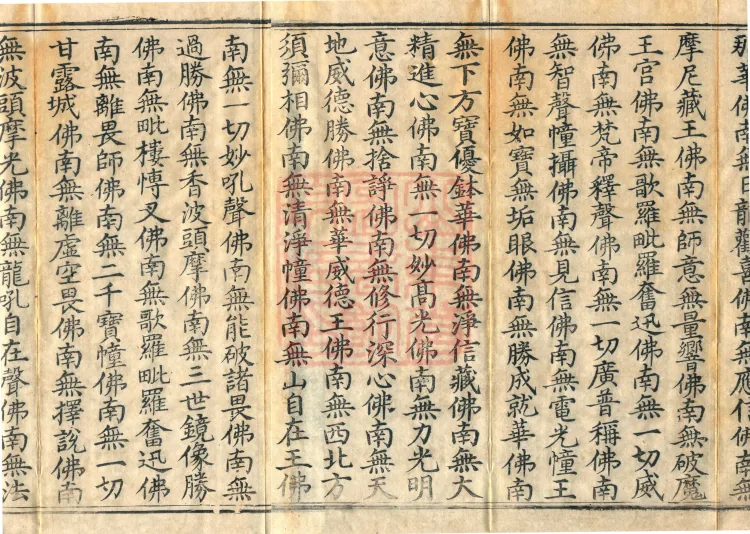 那華佛南無日龍歡喜佛南無應信佛南無
摩尼藏王佛南無師意無量響佛南無破魔
王宮佛南無歌羅毗羅奮迅佛南無一切威
佛南無梵帝釋聲佛南無一切廣普稱佛南
無智聲幢攝佛南無見信佛南無電光幢王
佛南無如寶無垢眼佛南無勝成就華佛南
無下方寶優鉢華佛南無淨信藏佛南無大
精進心佛南無一切妙髙光佛南無力光明
意佛南無捨諍佛南無修行深心佛南無天
地威德勝佛南無華威德王佛南無西北方
須彌相佛南無清淨幢佛南無山自在王佛
南無一切妙吼聲佛南無能破諸畏佛南無
過勝佛南無香波頭摩佛南無三世鏡像勝
佛南無毗樓愽叉佛南無歌羅毗羅奮迅佛
南無離畏師佛南無二千寶幢佛南無一切
甘露城佛南無離虛空畏佛南無擇說佛南
無波頭摩光佛南無龍吼自在聲佛南無法